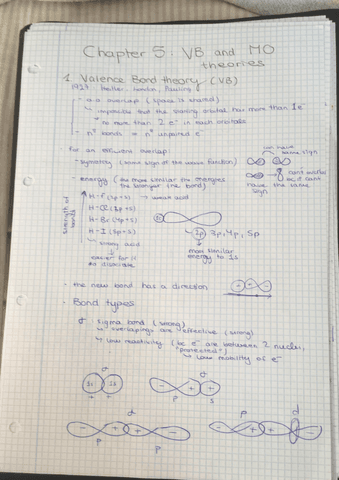 Chapter 5: VB and MO
theories
1. Valence Bond theory (VB)
1927 Heitler, London, Pauling
- a.o overlap (space is shared)
impossible that the
orbital has more than 1e⁻
no more than 2 e⁻ in each orbitals
- nº bonds = nº unpaired e⁻
For an efficient overlap:
- symmetry (same sign of the wave function)
same sign
cant
have the same
sign
- energy (the more similar the energies
the stronger the bond)
strength of
bonds
H-F (2p+s) → weak acid
H-Cl (3p+s)
H-Br (4p+s)
H-I (5p+s)
↳ strong acid
easier for it
to dissociate
2p, 3p, 4p, 5p
more similar
energy to 1s
· the new bond has a direction
+ +
· Bond types
σ sigma bond (strong)
↳ overlappings are effective (strong)
↳ low reactivity (bc e⁻ are between 2 nuclei,
"protected")
↳ low mobility of e⁻
σ
1s 1s
+ +
σ
- + +
p s
σ
- + + -
p p
p d
- + +